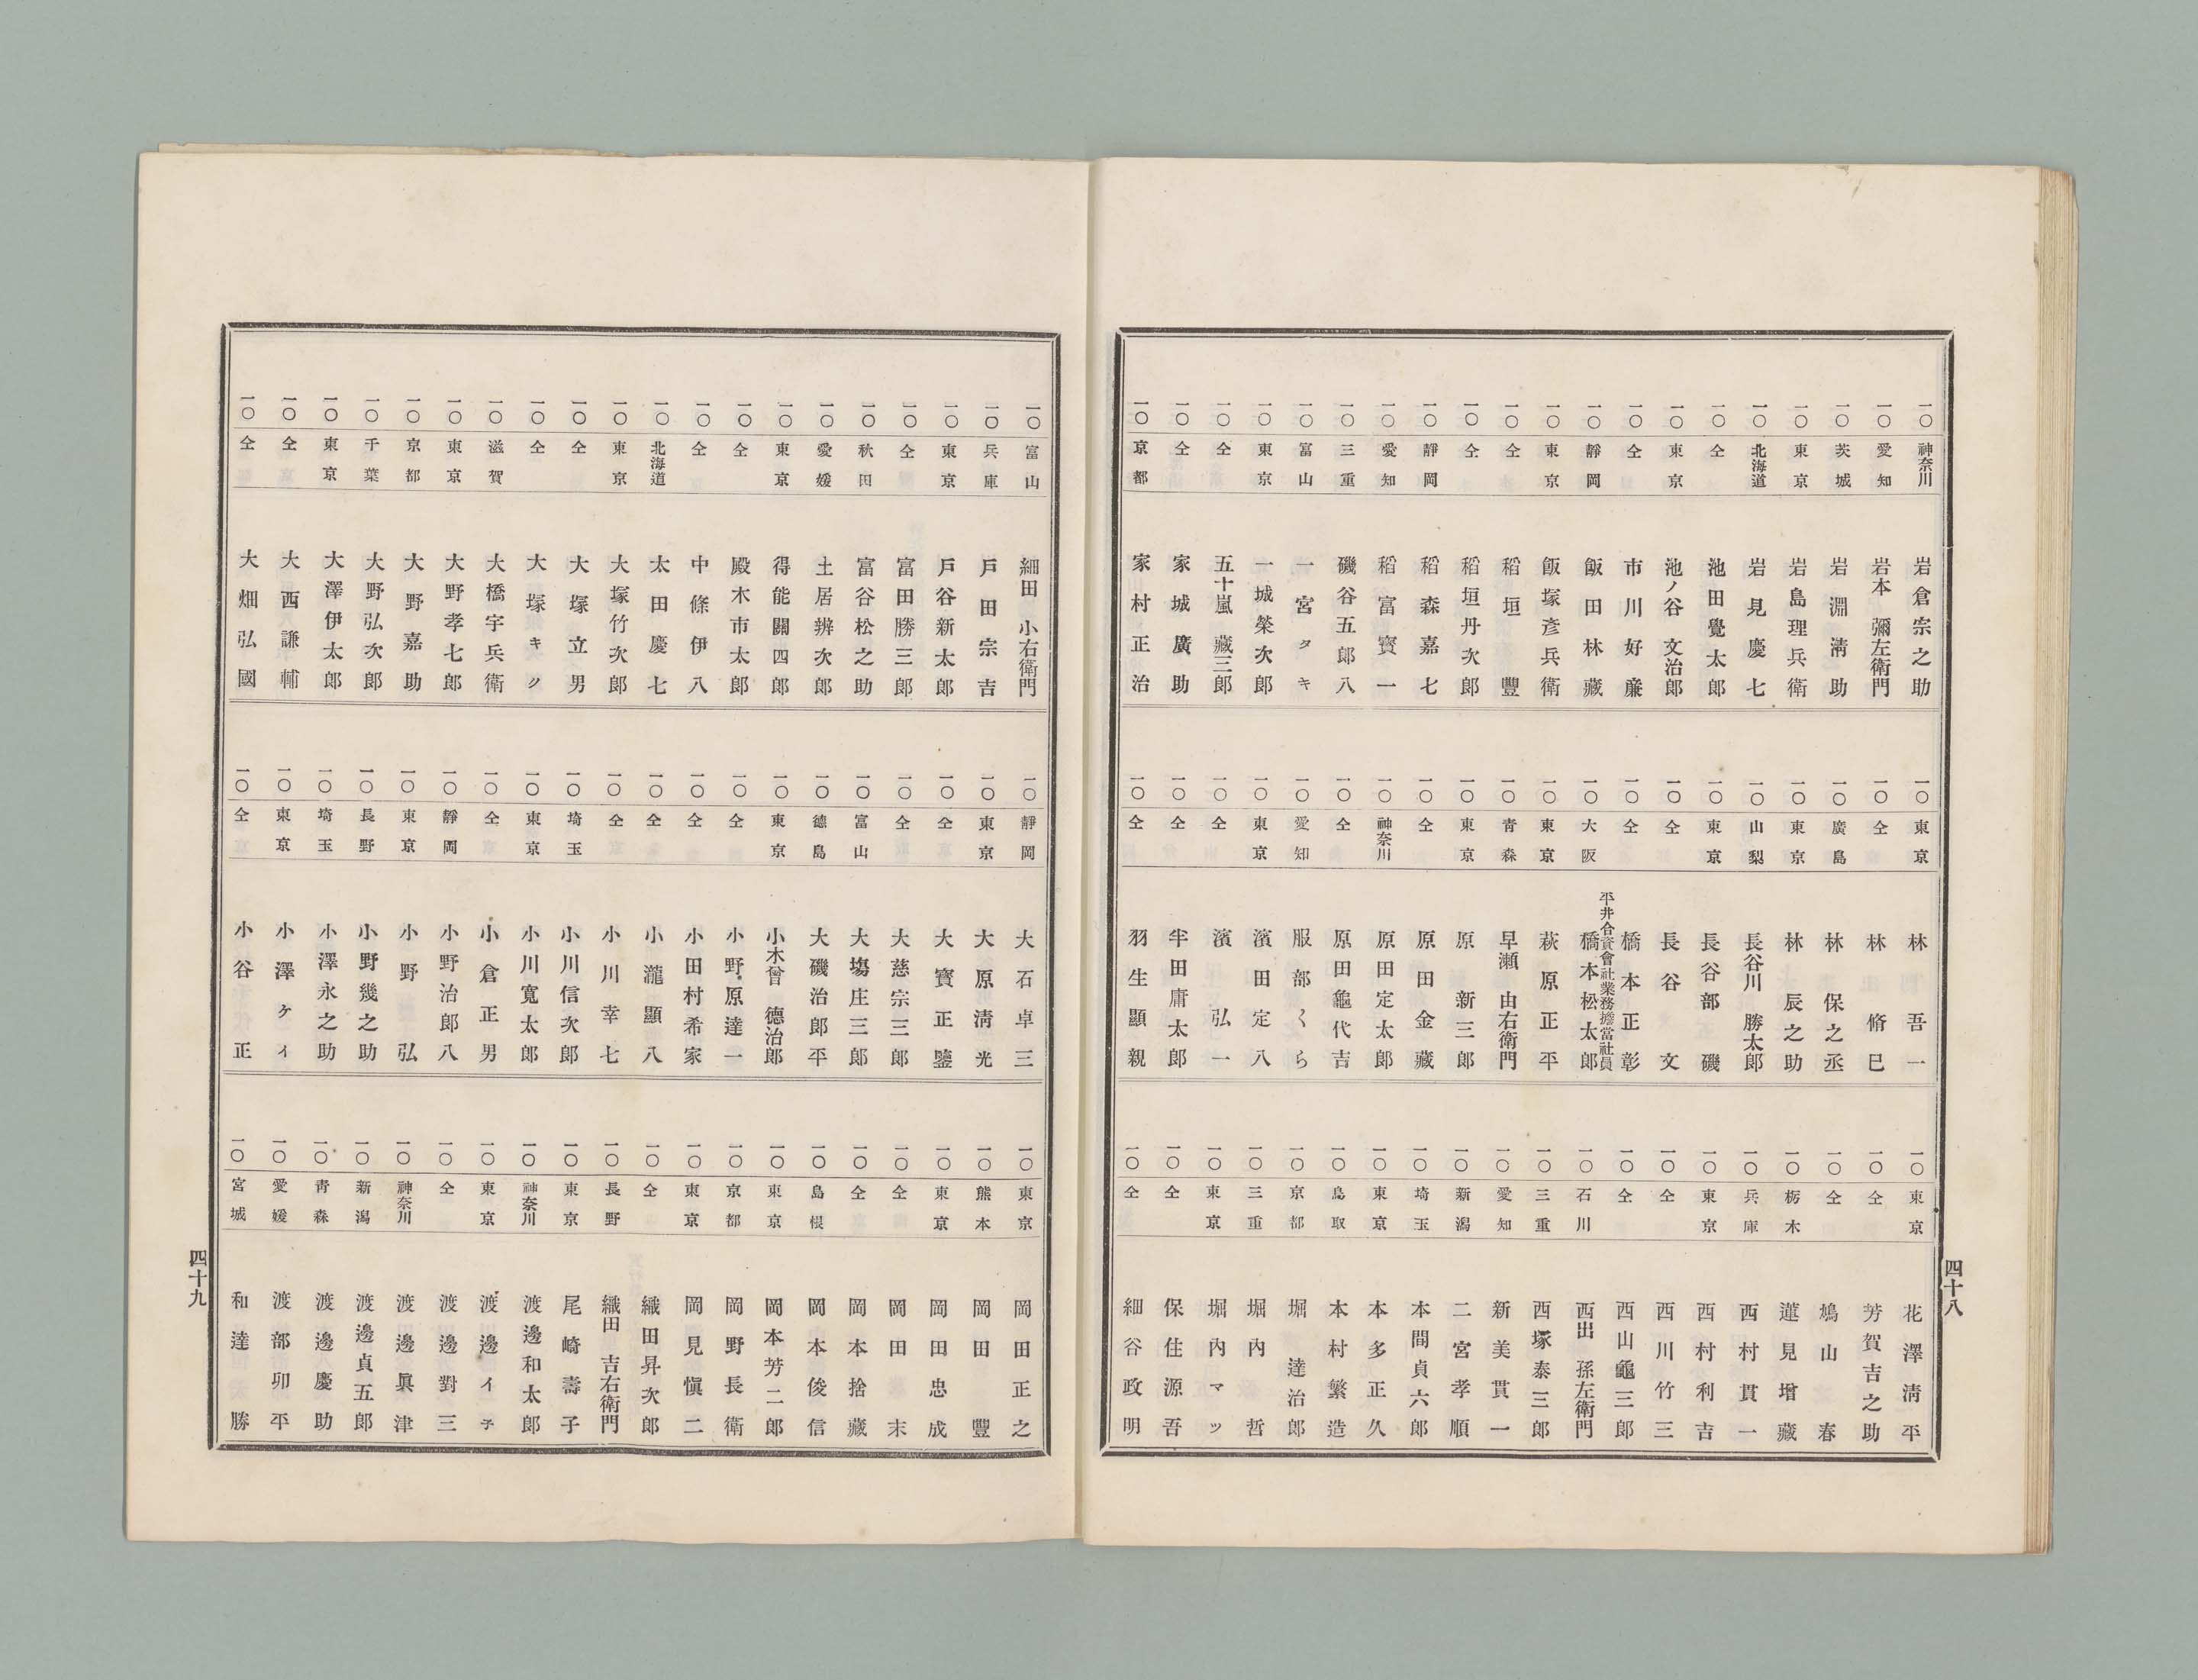 一〇 神奈川 岩倉宗之助
一〇 愛知 岩本彌左衛門
一〇 茨城 岩淵淸助
一〇 東京 岩島理兵衛
一〇 北海道 岩見慶七
一〇 仝 池田覺太郎
一〇 東京 池ノ谷文治郎
一〇 仝 市川好廉
一〇 靜岡 飯田林藏
一〇 東京 飯塚彥兵衛
一〇 仝 稻垣豐
一〇 仝 稻垣丹次郎
一〇 靜岡 稻森嘉七
一〇 愛知 稻富寳一
一〇 三重 磯谷五郎八
一〇 富山 一宮タキ
一〇 東京 一城榮次郎
一〇 仝 五十嵐藏三郎
一〇 仝 家城廣助
一〇 京都 家村正治
一〇 東京 林吾一
一〇 仝 林脩巳
一〇 廣島 林保之丞
一〇 東京 林辰之助
一〇 山梨 長谷川勝太郎
一〇 東京 長谷部磯
一〇 仝 長谷文
一〇 仝 橋本正彰
一〇 大阪 平井合資會社業務擔當社員 橋本松太郎
一〇 東京 萩原正平
一〇 靑森 早瀬由右衛門
一〇 東京 原新三郎
一〇 仝 原田金藏
一〇 神奈川 原田定太郎
一〇 仝 原田龜代吉
一〇 愛知 服部くら
一〇 東京 濱田定八
一〇 仝 濱弘一
一〇 仝 半田庸太郎
一〇 仝 羽生顯親
一〇 東京 花澤淸平
一〇 仝 芳賀吉之助
一〇 仝 鳩山春
一〇 栃木 蓮見增藏
一〇 兵庫 西村貫一
一〇 東京 西村利吉
一〇 仝 西川竹三
一〇 仝 西山龜三郎
一〇 石川 西出孫左衛門
一〇 三重 西塚泰三郎
一〇 愛知 新美貫一
一〇 新潟 二宮孝順
一〇 埼玉 本間貞六郎
一〇 東京 本多正久
一〇 鳥取 本村繁造
一〇 京都 堀達治郎
一〇 三重 堀內哲
一〇 東京 堀內マツ
一〇 仝 保住源吾
一〇 仝 細谷政明
四十八
一〇 富山 細田小右衛門
一〇 兵庫 戶田宗吉
一〇 東京 戶谷新太郎
一〇 仝 富田勝三郎
一〇 秋田 富谷松之助
一〇 愛媛 土居辨次郎
一〇 東京 得能關四郎
一〇 仝 殿木市太郎
一〇 仝 中條伊八
一〇 北海道 太田慶七
一〇 東京 大塚竹次郎
一〇 仝 大塚立男
一〇 仝 大塚キク
一〇 滋賀 大橋宇兵衛
一〇 東京 大野孝七郎
一〇 京都 大野嘉助
一〇 千葉 大野弘次郎
一〇 東京 大澤伊太郎
一〇 仝 大西謙輔
一〇 仝 大畑弘國
一〇 靜岡 大石卓三
一〇 東京 大原淸光
一〇 仝 大寳正鑒
一〇 仝 大慈宗三郎
一〇 富山 大塲庄三郎
一〇 德島 大磯治郎平
一〇 東京 小木曾德治郎
一〇 仝 小野原達一
一〇 仝 小田村希家
一〇 仝 小瀧顯八
一〇 仝 小川幸七
一〇 埼玉 小川信次郎
一〇 東京 小川寬太郎
一〇 仝 小倉正男
一〇 靜岡 小野治郎八
一〇 東京 小野弘
一〇 長野 小野幾之助
一〇 埼玉 小澤永之助
一〇 東京 小澤ケイ
一〇 仝 小谷正
一〇 東京 岡田正之
一〇 熊本 岡田豐
一〇 東京 岡田忠成
一〇 仝 岡田末
一〇 仝 岡本捨藏
一〇 島根 岡本俊信
一〇 東京 岡本芳二郎
一〇 京都 岡野長衛
一〇 東京 岡見愼二
一〇 仝 織田昇次郎
一〇 長野 織田吉右衛門
一〇 東京 尾崎壽子
一〇 神奈川 渡邊和太郎
一〇 東京 渡邊イチ
一〇 仝 渡邊對三
一〇 神奈川 渡邊眞津
一〇 新潟 渡邊貞五郎
一〇 靑森 渡邊慶助
一〇 愛媛 渡部卯平
一〇 宮城 和達勝
四十九